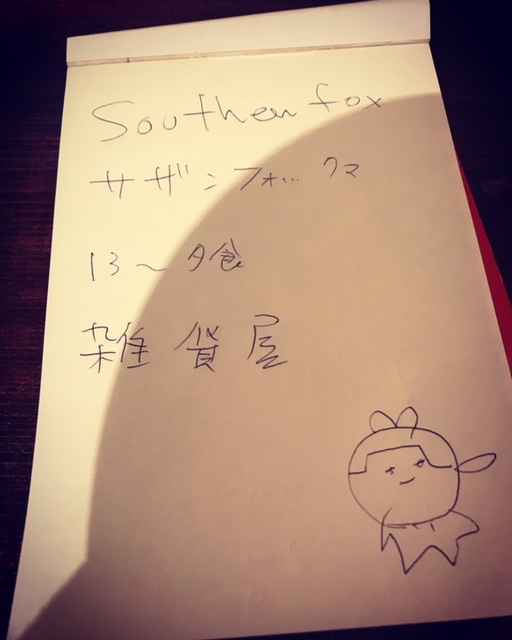 Southen fox
サザンフォ… クマ
13〜夕食
雑貨屋